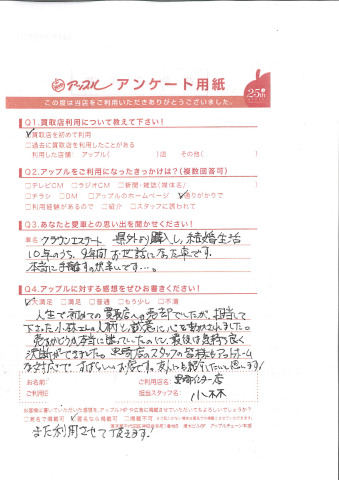 アップル アンケート用紙
25th
この度は当店をご利用いただきありがとうございました。
Q1.買取店利用について教えて下さい!
☑買取店を初めて利用
□過去に買取店を利用したことがある
利用した店舗: アップル( )店 その他( )
Q2.アップルをご利用になったきっかけは?(複数回答可)
□テレビCM □ラジオCM □新聞・雑誌(媒体名 )
□チラシ □DM □アップルのホームページ ☑通りがかりで
□利用経験があるので □紹介 □スタッフに誘われて
Q3.あなたと愛車との思い出を聞かせください!
車名:クラウンエステート 県外より購入し、結婚生活
10年のうち、9年間お世話になった車です。
本当に手離すのが辛いです…。
Q4.アップルに対する感想をぜひお書きください!
☑大満足 □満足 □普通 □もう少し □不満
人生で初めての買取店への売却でしたが、担当して
下さった小林さんの人柄と誠意に心を動かされました。
売るかどうか本当に迷っていたのに、最後は気持ち良く
決断ができました。 店のスタッフの皆様もアットホーム
な方たちで、すばらしいお店です。友人にも紹介したいと思います!
お名前: ご利用店名: インター店
ご利用日 担当スタッフ名: 小林
お客様に書いていただいた感想を、アップルHPや広告に掲載させていただいてもよろしいでしょうか?
□実名で掲載可 ☑匿名なら掲載可 □掲載不可
また利用させて頂きます!